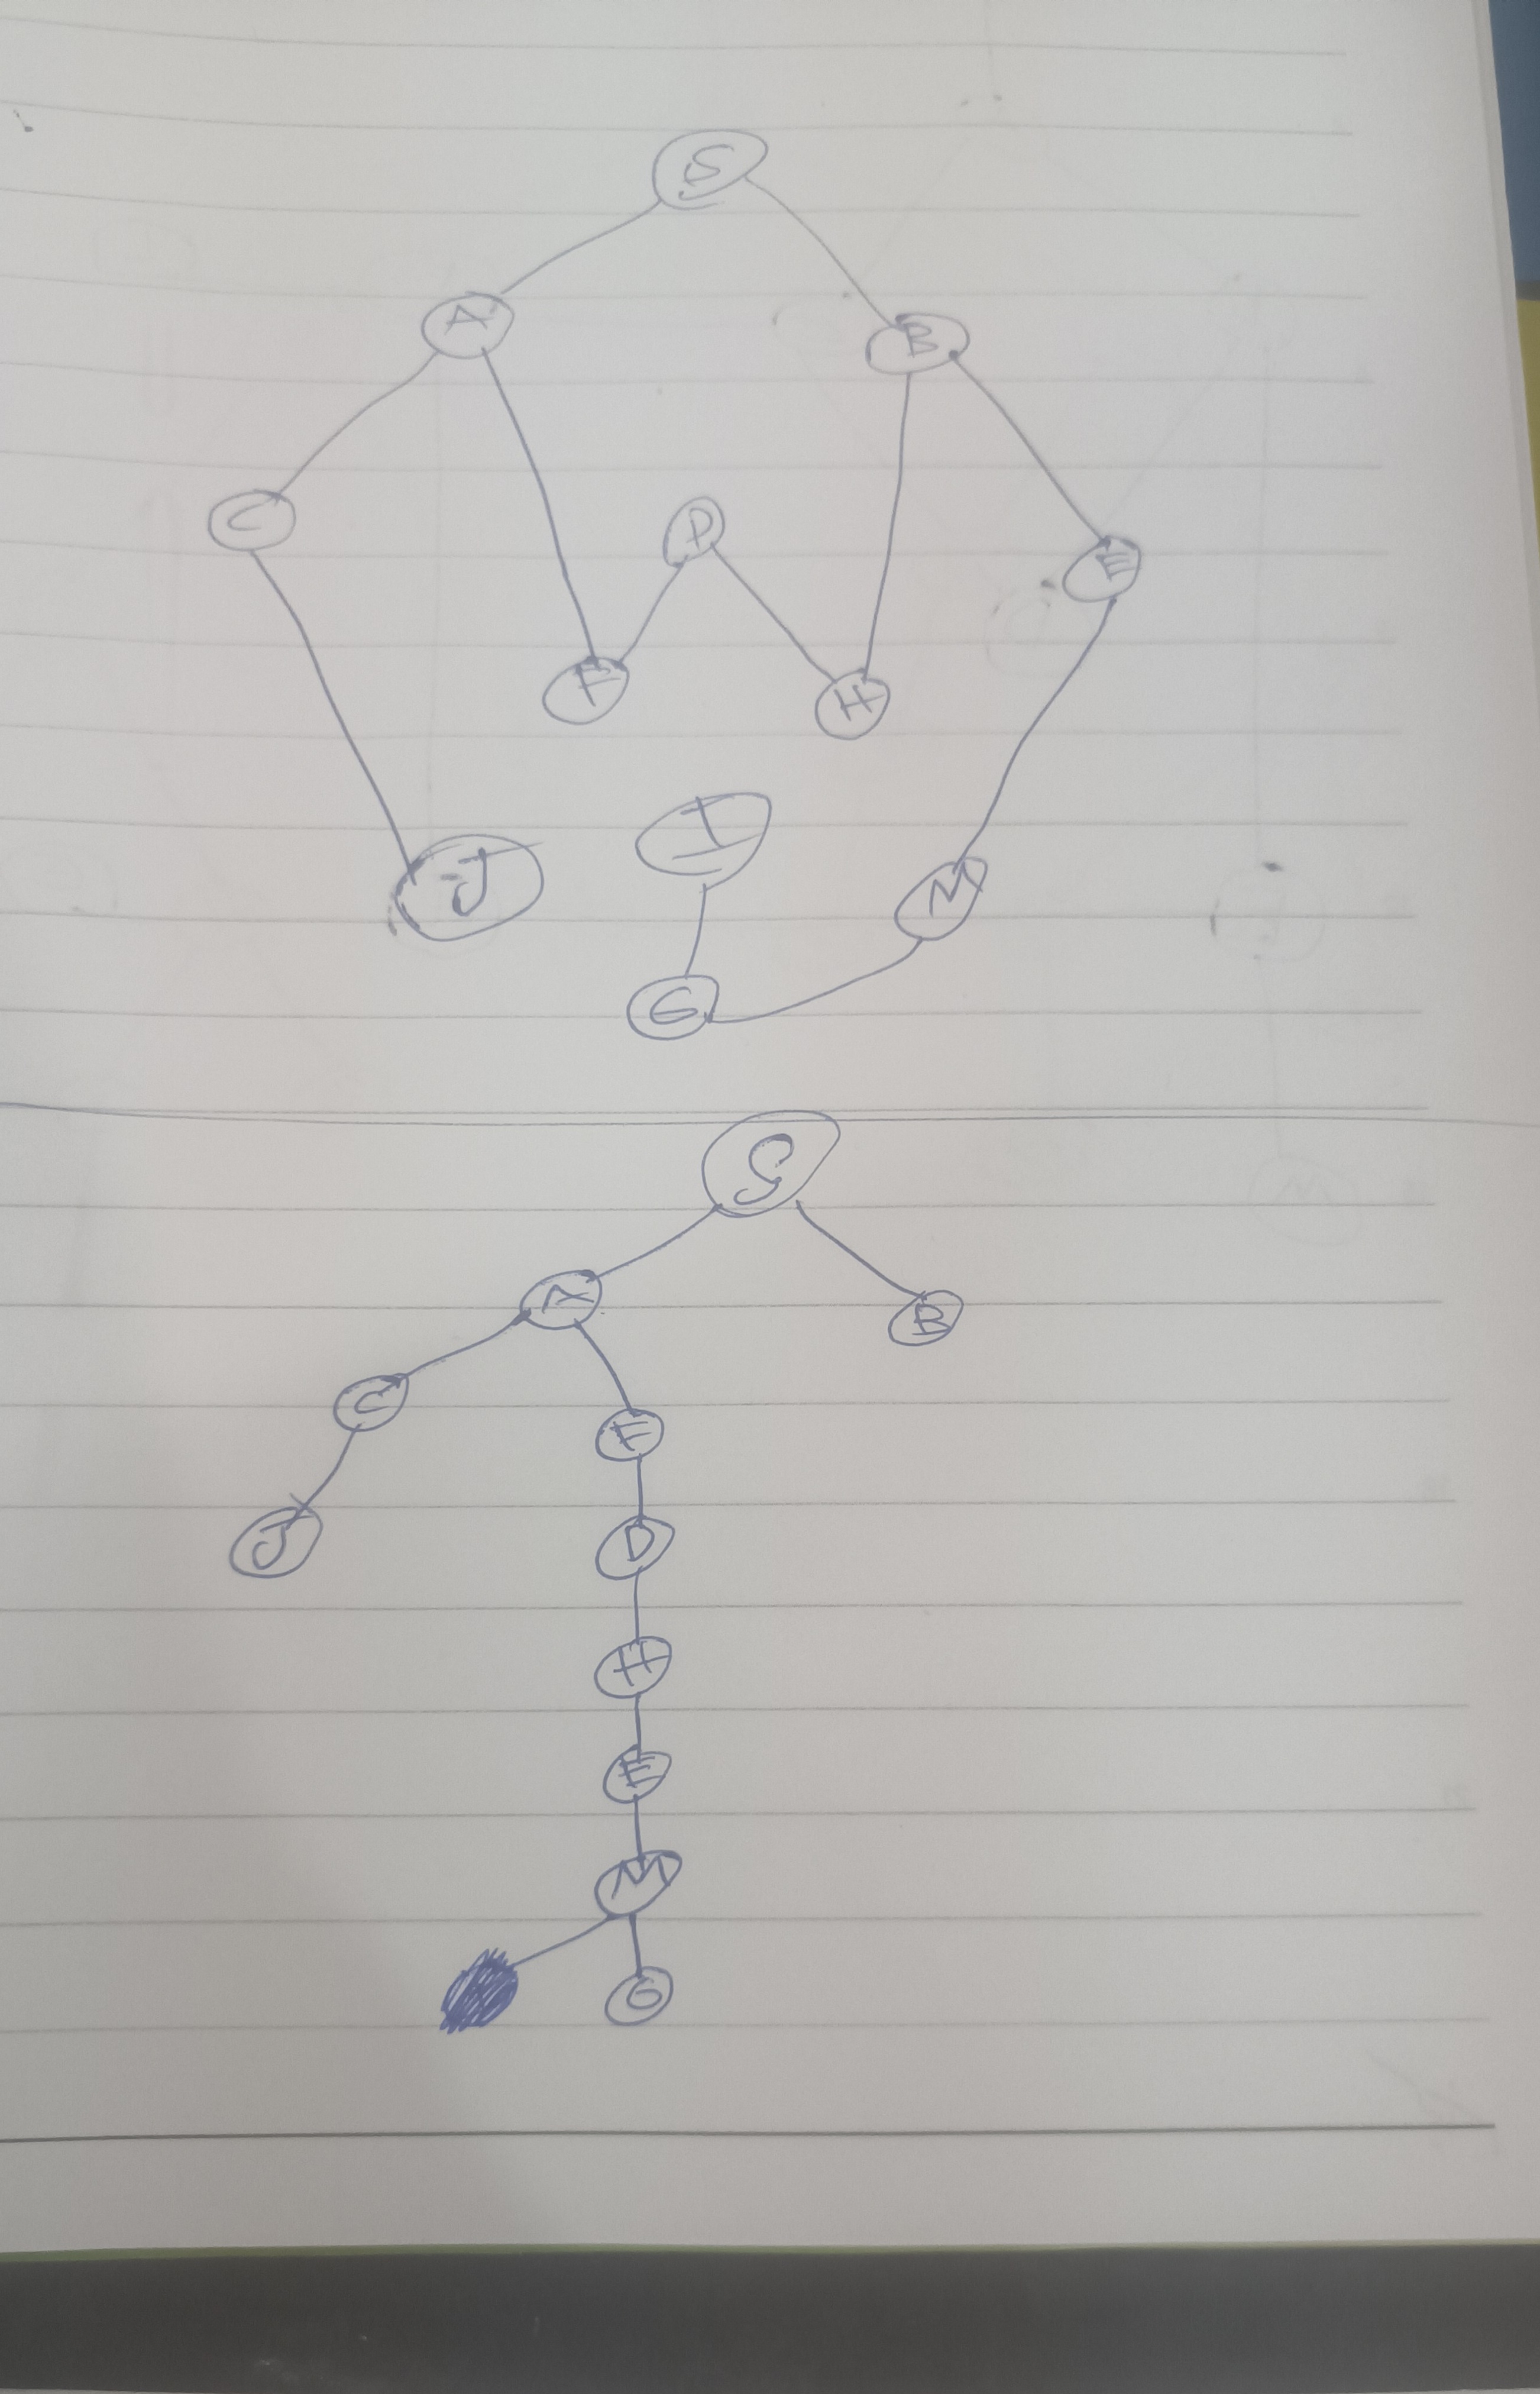 S
A
B
C
D
E
F
H
I
J
M
G
S
A
B
C
F
J
D
H
E
M
G